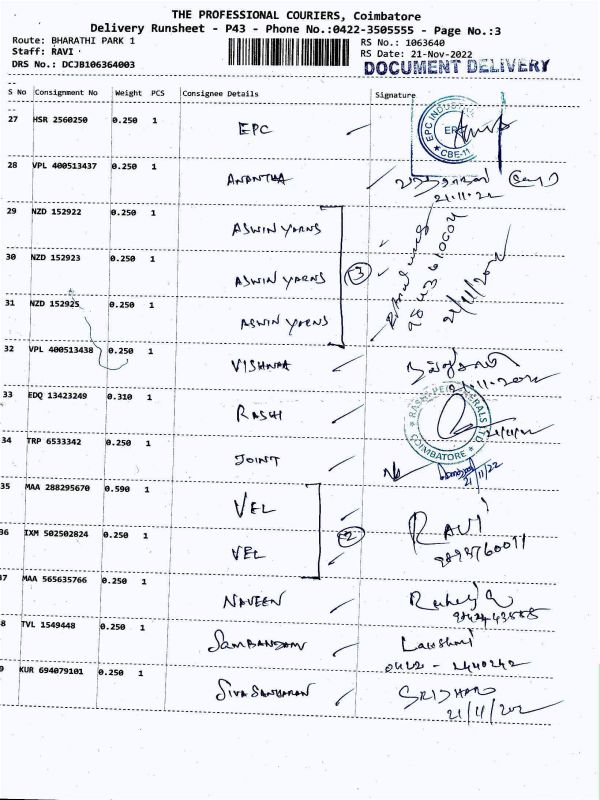 THE PROFESSIONAL COURIERS, Coimbatore
Delivery Runsheet - P43 - Phone No.:0422-3505555 - Page No.:3
Route: BHARATHI PARK 1
RS No.: 1063640
Staff: RAVI
RS Date: 21-Nov-2022
DRS No.: DCJB106364003
DOCUMENT DELIVERY
S No Consignment No Weight PCS Consignee Details Signature
27 HSR 2560250 0.250 1 EPC
EPC INDUSTRI
CBE-11
28 VPL 400513437 0.250 1 ANANTHA
21.11.22
29 NZD 152922 0.250 1 ASWIN YARNS
30 NZD 152923 0.250 1 ASWIN YARNS 3
31 NZD 152925 0.250 1 ASWIN YARNS
32 VPL 400513438 0.250 1 VISHNAA
33 EDQ 13423249 0.310 1 RASHI
COIMBATORE
34 TRP 6533342 0.250 1 JOINT
21/11/22
35 MAA 288295670 0.590 1 VEL
RAVI
36 IXM 502502824 0.250 1 VEL 2
37 MAA 565635766 0.250 1 NAVEEN
38 TVL 1549448 0.250 1 SAMBANDAM Lakshmi
0422 - 2440242
39 KUR 694079101 0.250 1 SIVA SANKARAN SRIDHAR
21/11/202